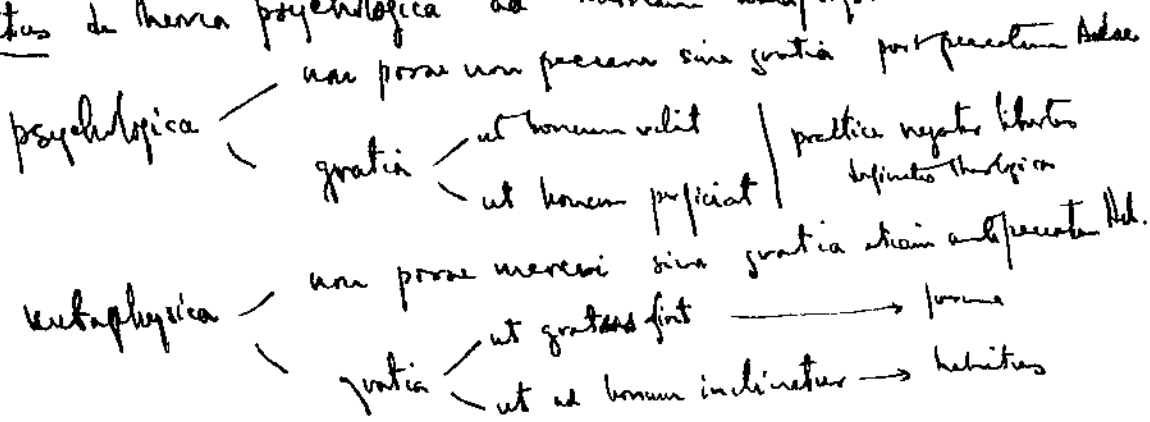 de theoria psychologica ad
psychologica
non posse non peccare sine gratia post peccatum Adae
gratia
ut bonum velit
ut bonum perficiat
practice negatur libertas
definitio theologica
metaphysica
non posse mereri sine gratia etiam ante peccatum Ad.
gratia
ut gratus fiat → forma
ut ad bonum inclinetur → habitus